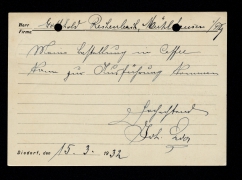 Herr
Firma Gotthold Reichenbach, Mühlhausen i/Thg
Meine Bestellung in Coffee
kann zur Ausführung kommen
Hochachtend
Joh.
Diedorf, den 15. 3. 1932